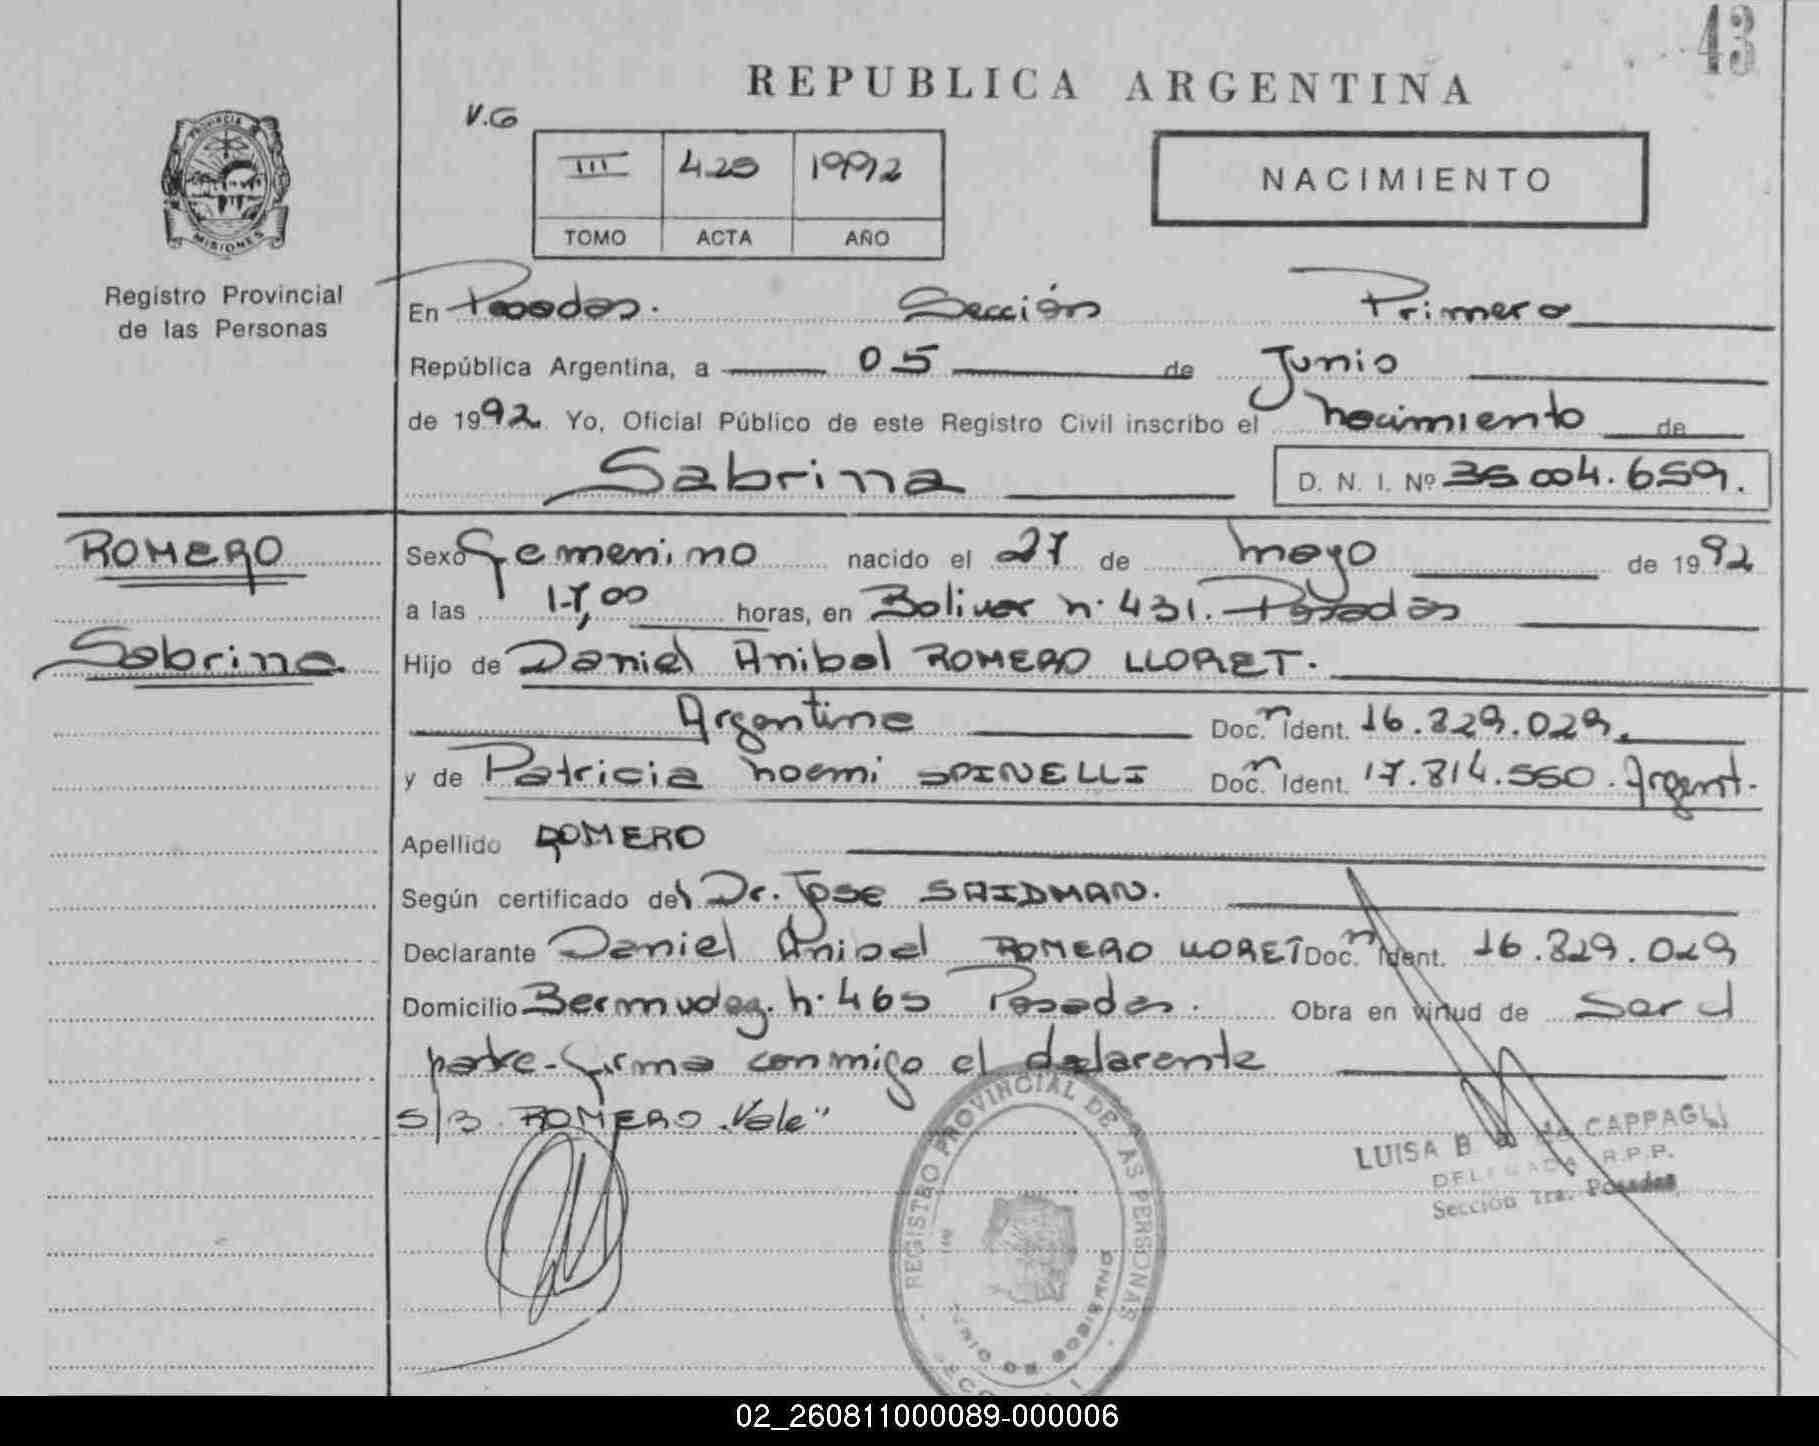 43
REPUBLICA ARGENTINA
V.G
III 425 1992
TOMO ACTA AÑO
NACIMIENTO
PROVINCIA
MISIONES
Registro Provincial
de las Personas
En Posadas. Sección Primera
República Argentina, a 05 de Junio
de 1992. Yo, Oficial Público de este Registro Civil inscribo el nacimiento de
Sabrina D. N. I. Nº 36.004.659.
ROMERO
Sabrina
Sexo Femenino nacido el 27 de mayo de 1992
a las 17,00 horas, en Bolivar n. 431. Posadas
Hijo de Daniel Anibal ROMERO LLORET.
Argentina Doc.n Ident. 16.829.029.
y de Patricia noemi SPINELLI Doc.n Ident. 17.814.550. Argent.
Apellido ROMERO
Según certificado del Dr. Jose SAIDMAN.
Declarante Daniel Anibal ROMERO LLORET Doc.n Ident. 16.829.029
Domicilio Bermudez. n. 465 Posadas. Obra en virtud de Ser el
padre - firma conmigo el declarante
S/B ROMERO "Vale"
REGISTRO PROVINCIAL DE LAS PERSONAS
DE GOBIERNO
LUISA B de CAPPAGLI
DELEGADA R.P.P.
Sección 1ra. Posadas
02_260811000089-000006